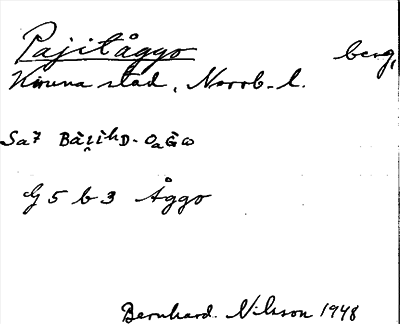 Pajitåggo berg,
Kiruna stad, Norrb. l.
Sa7
G 5 b 3 Åggo
Bernhard Nilsson 1948